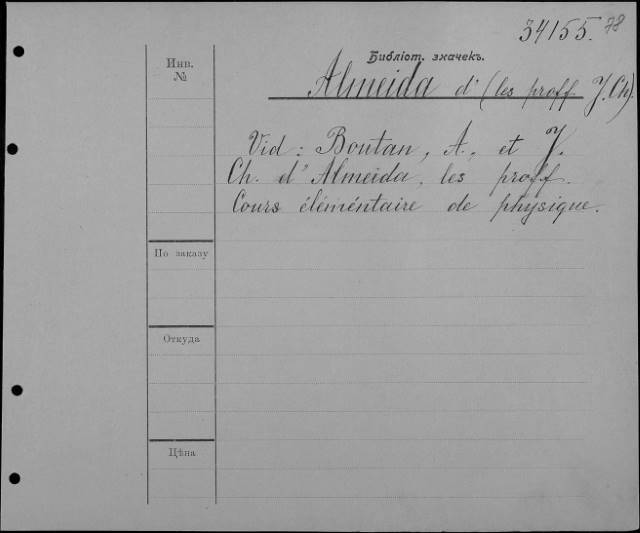 34155. 78
Библіот. значекъ.
Almeida d' (les proff. J. Ch).
Инв.
№
Vid: Boutan, A., et J.
Ch. d'Almeida, les proff.
Cours élémentaire de physique.
По заказу
Откуда
Цѣна